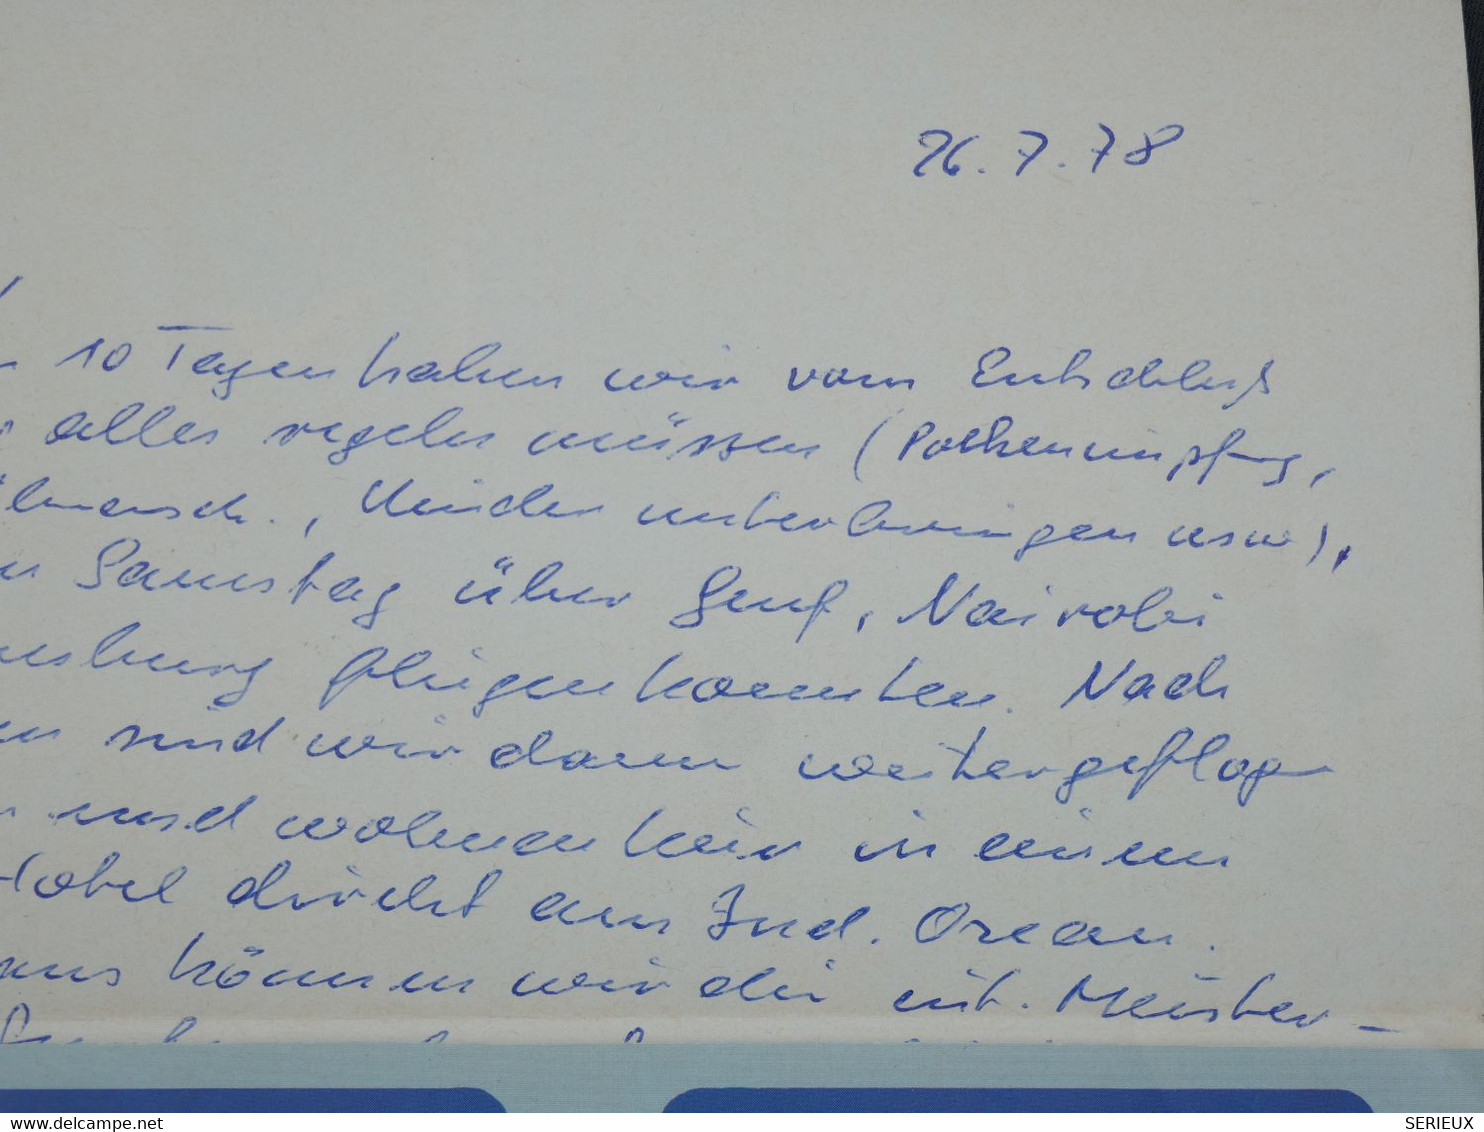 26.7.78
10 Tagen haben wir vom Entschluß
alles regeln müssen (Pockenimpfung,
Kinder unterbringen usw),
Samstag über Genf, Nairobi
fliegen konnten. Nach
sind wir dann weitergeflogen
und wohnen hier in einem
Hotel direkt am Ind. Ozean.
uns können wir die int. Meister-
www.delcampe.net
SERIEUX